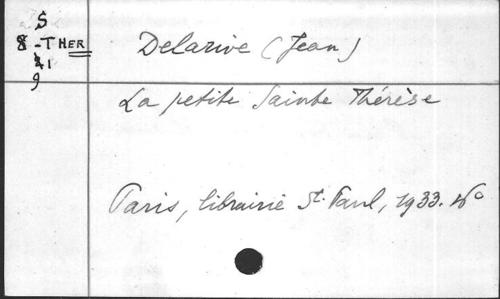 S
8 -THER
41
9
Delarive (Jean)
La petite Sainte Thérèse
Paris, librairie St. Paul, 1933.